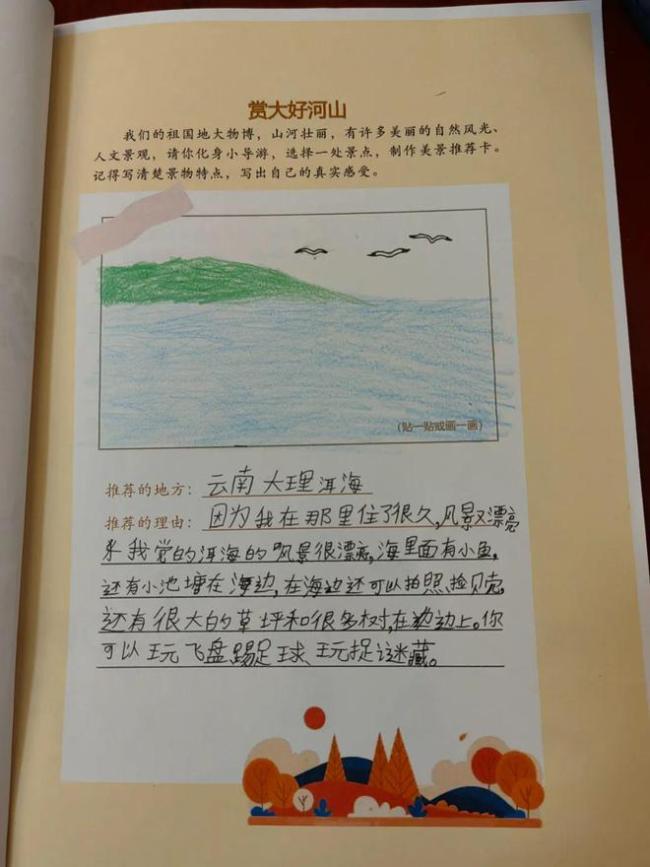 赏大好河山
我们的祖国地大物博，山河壮丽，有许多美丽的自然风光、
人文景观，请你化身小导游，选择一处景点，制作美景推荐卡。
记得写清楚景物特点，写出自己的真实感受。
(贴一贴或画一画)
推荐的地方：云南大理洱海
推荐的理由：因为我在那里住了很久，风景又漂亮
我觉的洱海的风景很漂亮，海里面有小鱼，
还有小池塘在海边，在海边还可以拍照、捡贝壳，
还有很大的草坪和很多树，在边边上。你
可以玩飞盘踢足球玩捉谜藏。